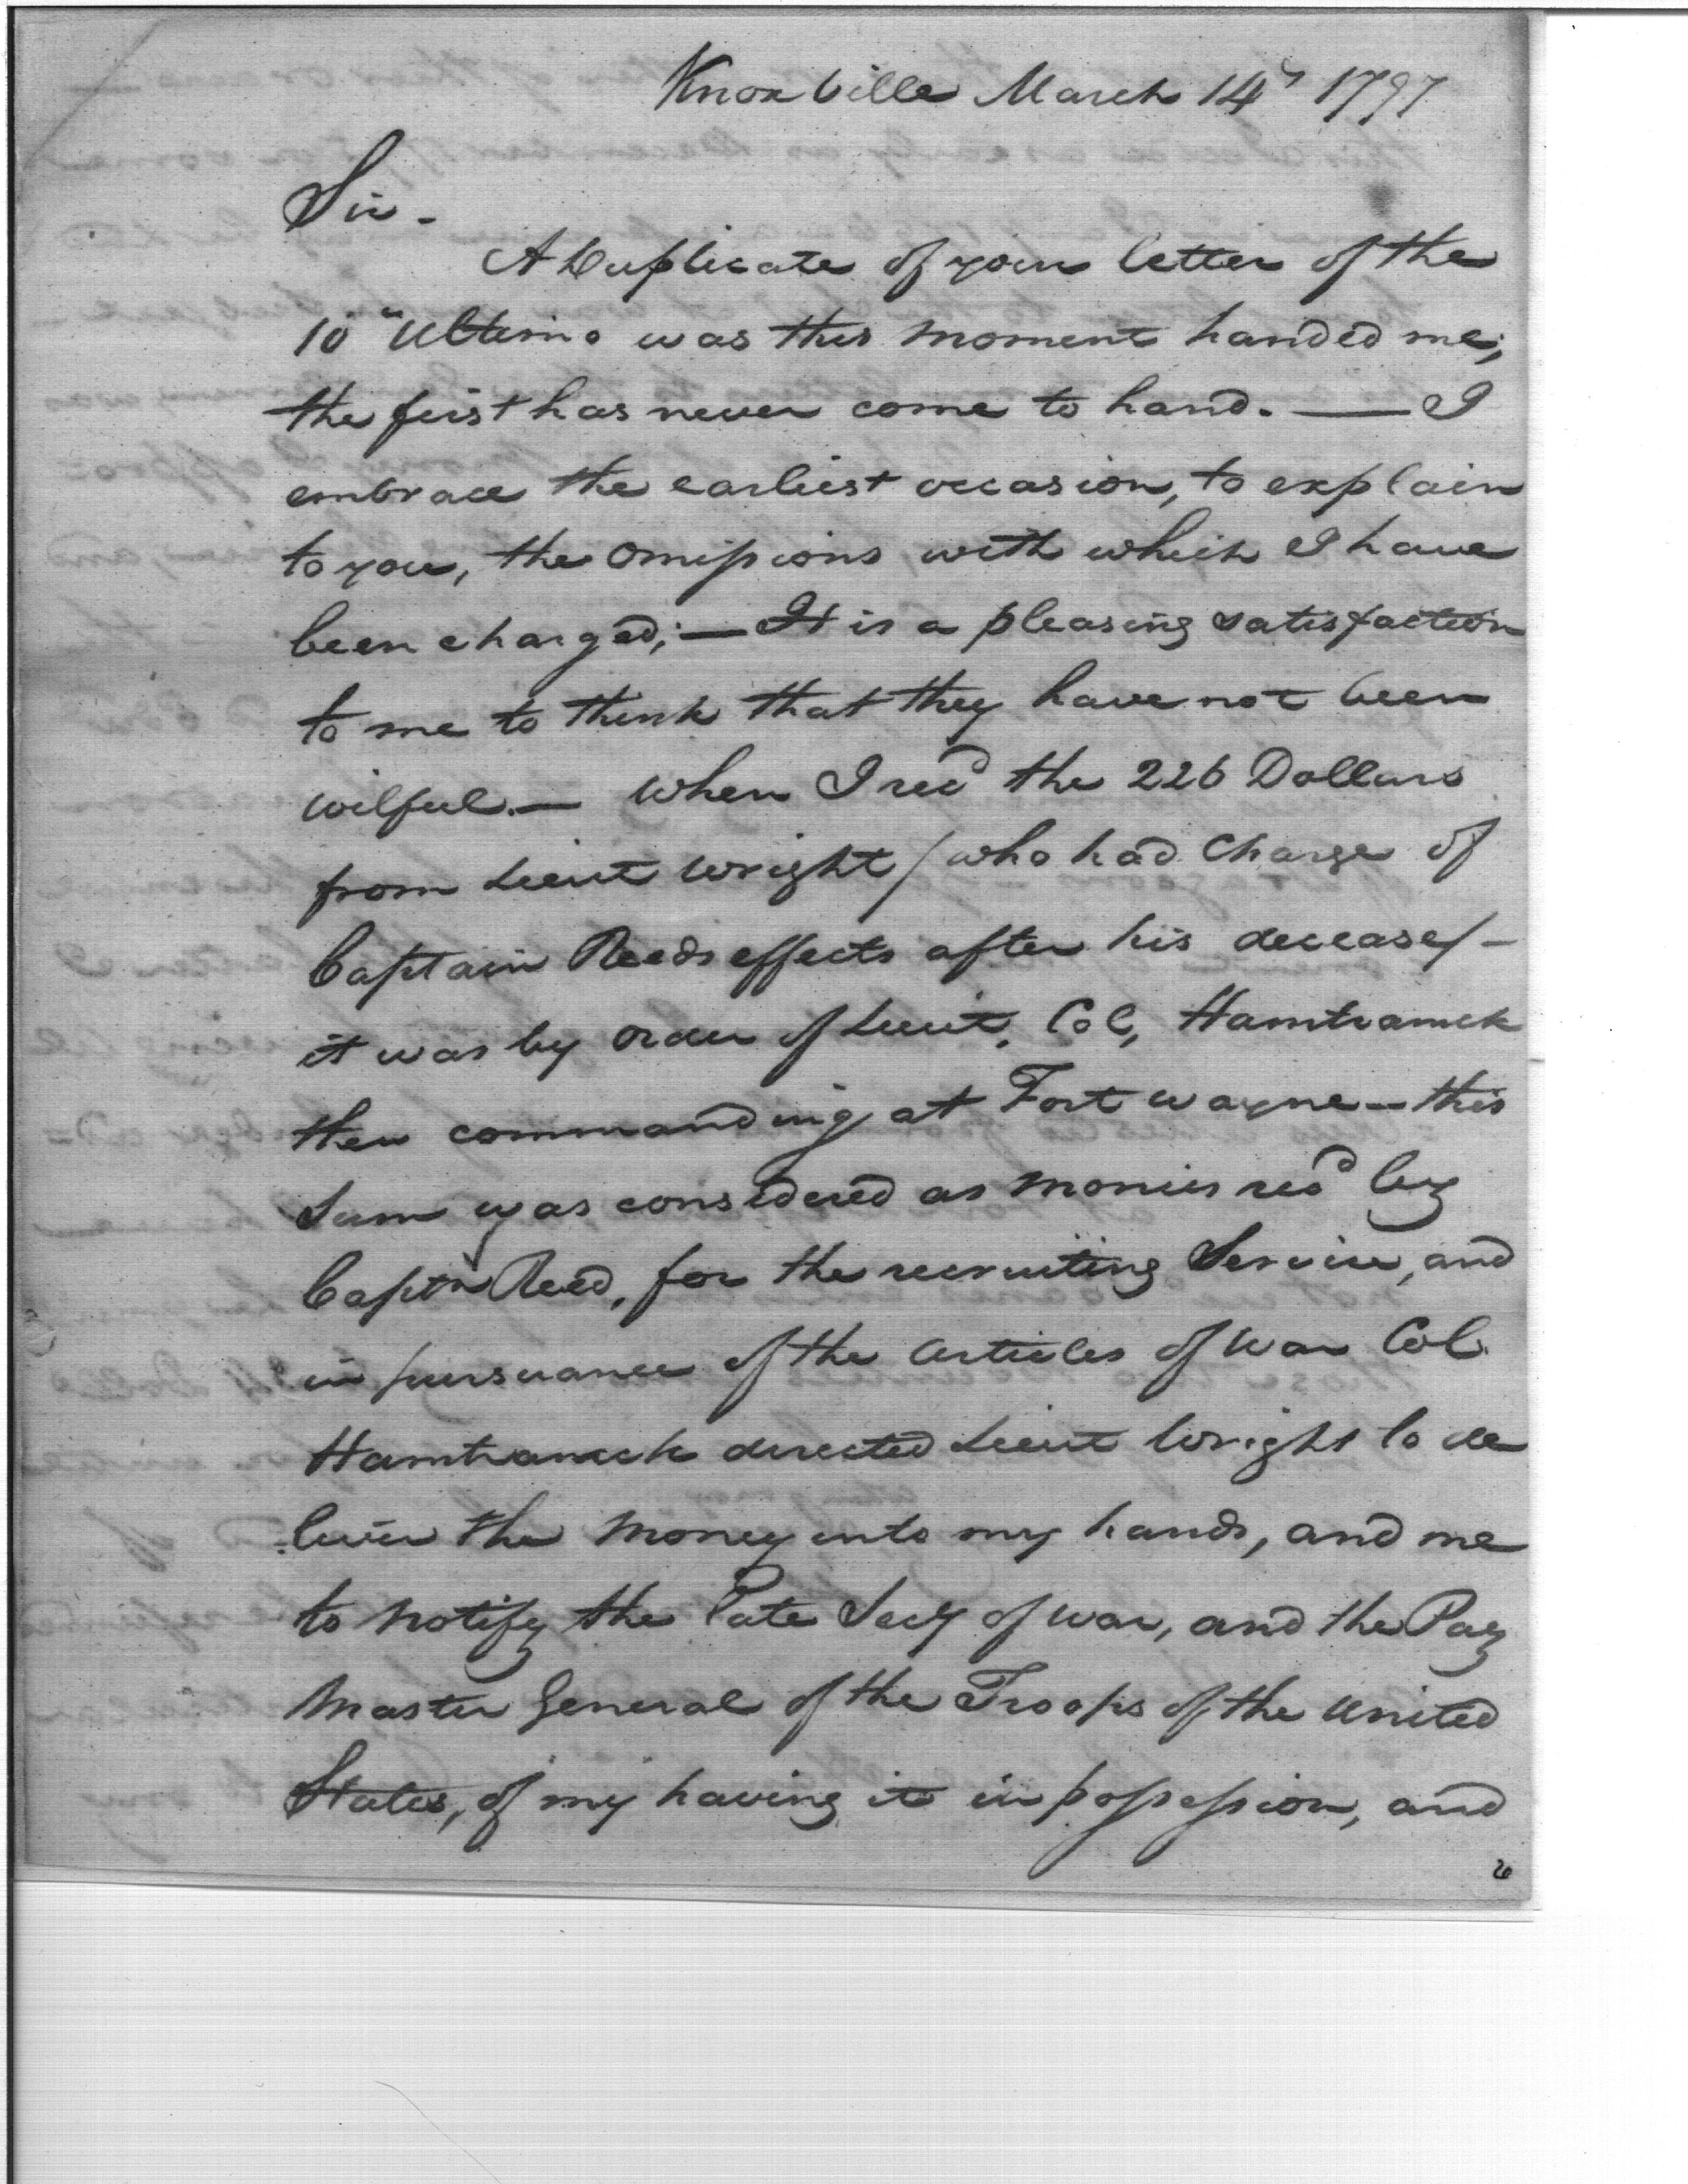 Knoxville March 14th 1797
Sir -
A Duplicate of your letter of the
10th Ultimo was this moment handed me;
the first has never come to hand. — I
embrace the earliest occasion, to explain
to you, the omissions with which I have
been charged; — It is a pleasing satisfaction
to me to think that they have not been
wilful. — When I recd the 226 Dollars
from Lieut Wright / who had Charge of
Captain Reeds effects after his decease / -
it was by order of Lieut. Col, Hamtramck
then commanding at Fort Wayne — this
Sum was considered as monies recd by
Captn Reed, for the recruiting Service, and
in pursuance of the articles of War Col.
Hamtramck directed Lieut Wright to de
-liver the Money into my hands, and me
to notify the late Secy of War, and the Pay
Master General of the Troops of the United
States, of my having it in possession, and